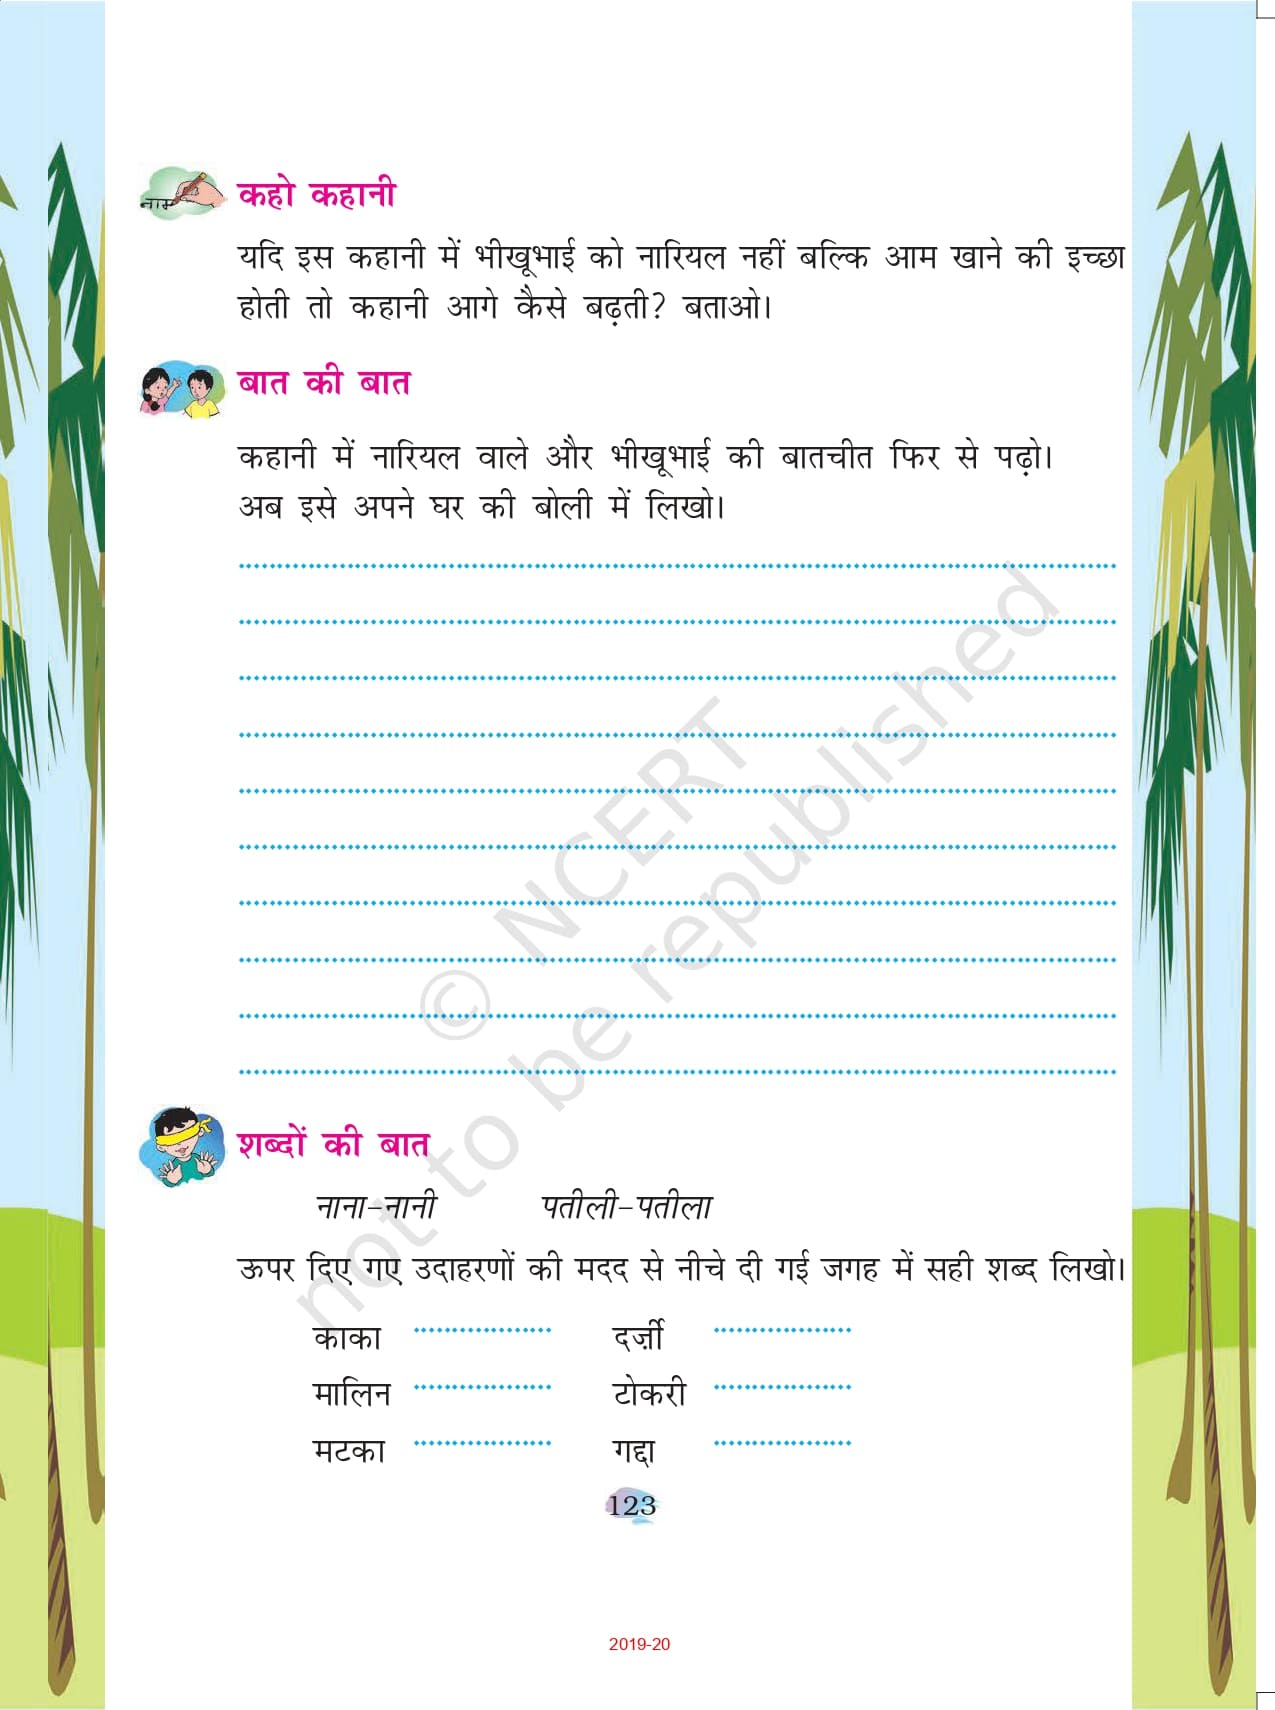 नाम
कहो कहानी
यदि इस कहानी में भीखूभाई को नारियल नहीं बल्कि आम खाने की इच्छा
होती तो कहानी आगे कैसे बढ़ती? बताओ।
बात की बात
कहानी में नारियल वाले और भीखूभाई की बातचीत फिर से पढ़ो।
अब इसे अपने घर की बोली में लिखो।
© NCERT
not to be republished
शब्दों की बात
नाना-नानी पतीली-पतीला
ऊपर दिए गए उदाहरणों की मदद से नीचे दी गई जगह में सही शब्द लिखो।
काका .................. दर्ज़ी ..................
मालिन .................. टोकरी ..................
मटका .................. गद्दा ..................
123
2019-20